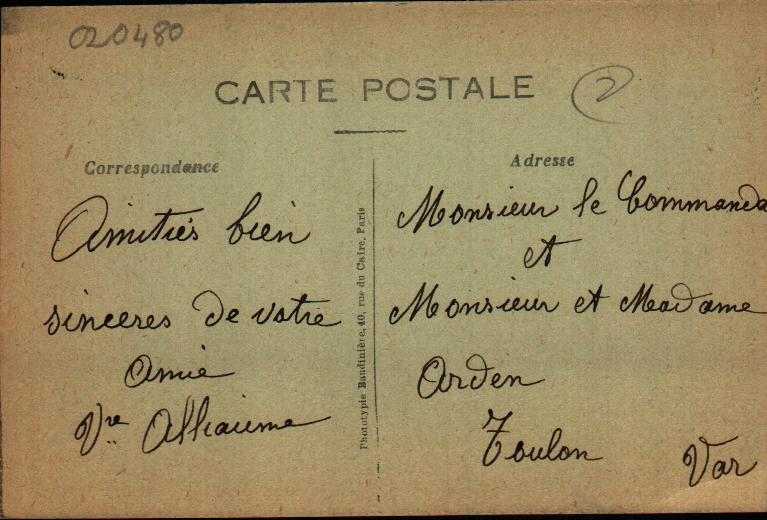 020480
CARTE POSTALE
2
Correspondance
Amitiés bien
sinceres de votre
amie
Vve Alliaume
Phototypie Baudinière, 40, rue du Caire, Paris
Adresse
Monsieur le Commanda
et
Monsieur et Madame
Arden
Toulon Var